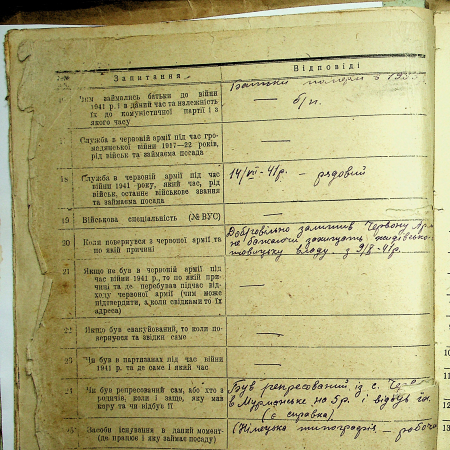 №№
Запитання
Відповіді
Чим займались батьки до війни
1941 р. і в даний час та належність
їх до комуністичної партії і з
якого часу
Батьки померли в
б/п.
Служба в червоній армії під час гро-
мадянської війни 1917—22 років,
рід військ та займаєма посада
18
Служба в червоній армії під час
війни 1941 року, який час, рід
військ, останнє військове звання
та займаєма посада
14/VII-41р. – рядовий
19
Військова спеціальність (№ ВУС)
20
Коли повернувся з червоної армії та
по якій причині
Добровільно залишив Червону Ар
не бажаючи захищать жидівсько-
владу з 9/8-41р.
21
Якщо не був в червоній армії під
час війни 1941 р., то по якій при-
чині та де перебував підчас від-
ходу червоної армії (чим може
підтвердити, а коли свідками то їх
адреса)
22
Якщо був евакуйований, то коли по-
вернувся та звідки саме
23
Чи був в партизанах під час війни
1941 р. та де саме і який час
24
Чи був репресований сам, або хто з
родичів, коли і защо, яку мав
кару та чи відбув її
Був репресований із с.
в Мурманське на 5р. і відбув
(є справка)
Засоби існування в даний момент
(де працює і яку займає посаду)
(Німецька типографія – робоч
10
11
12
13